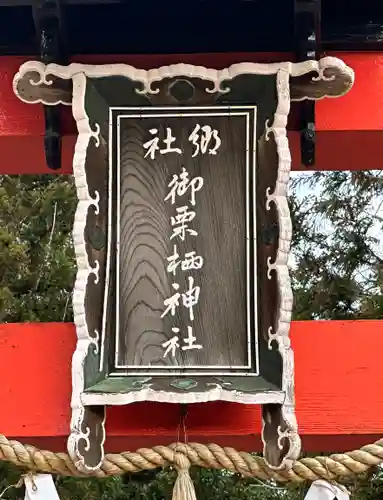 郷社
御栗栖神社